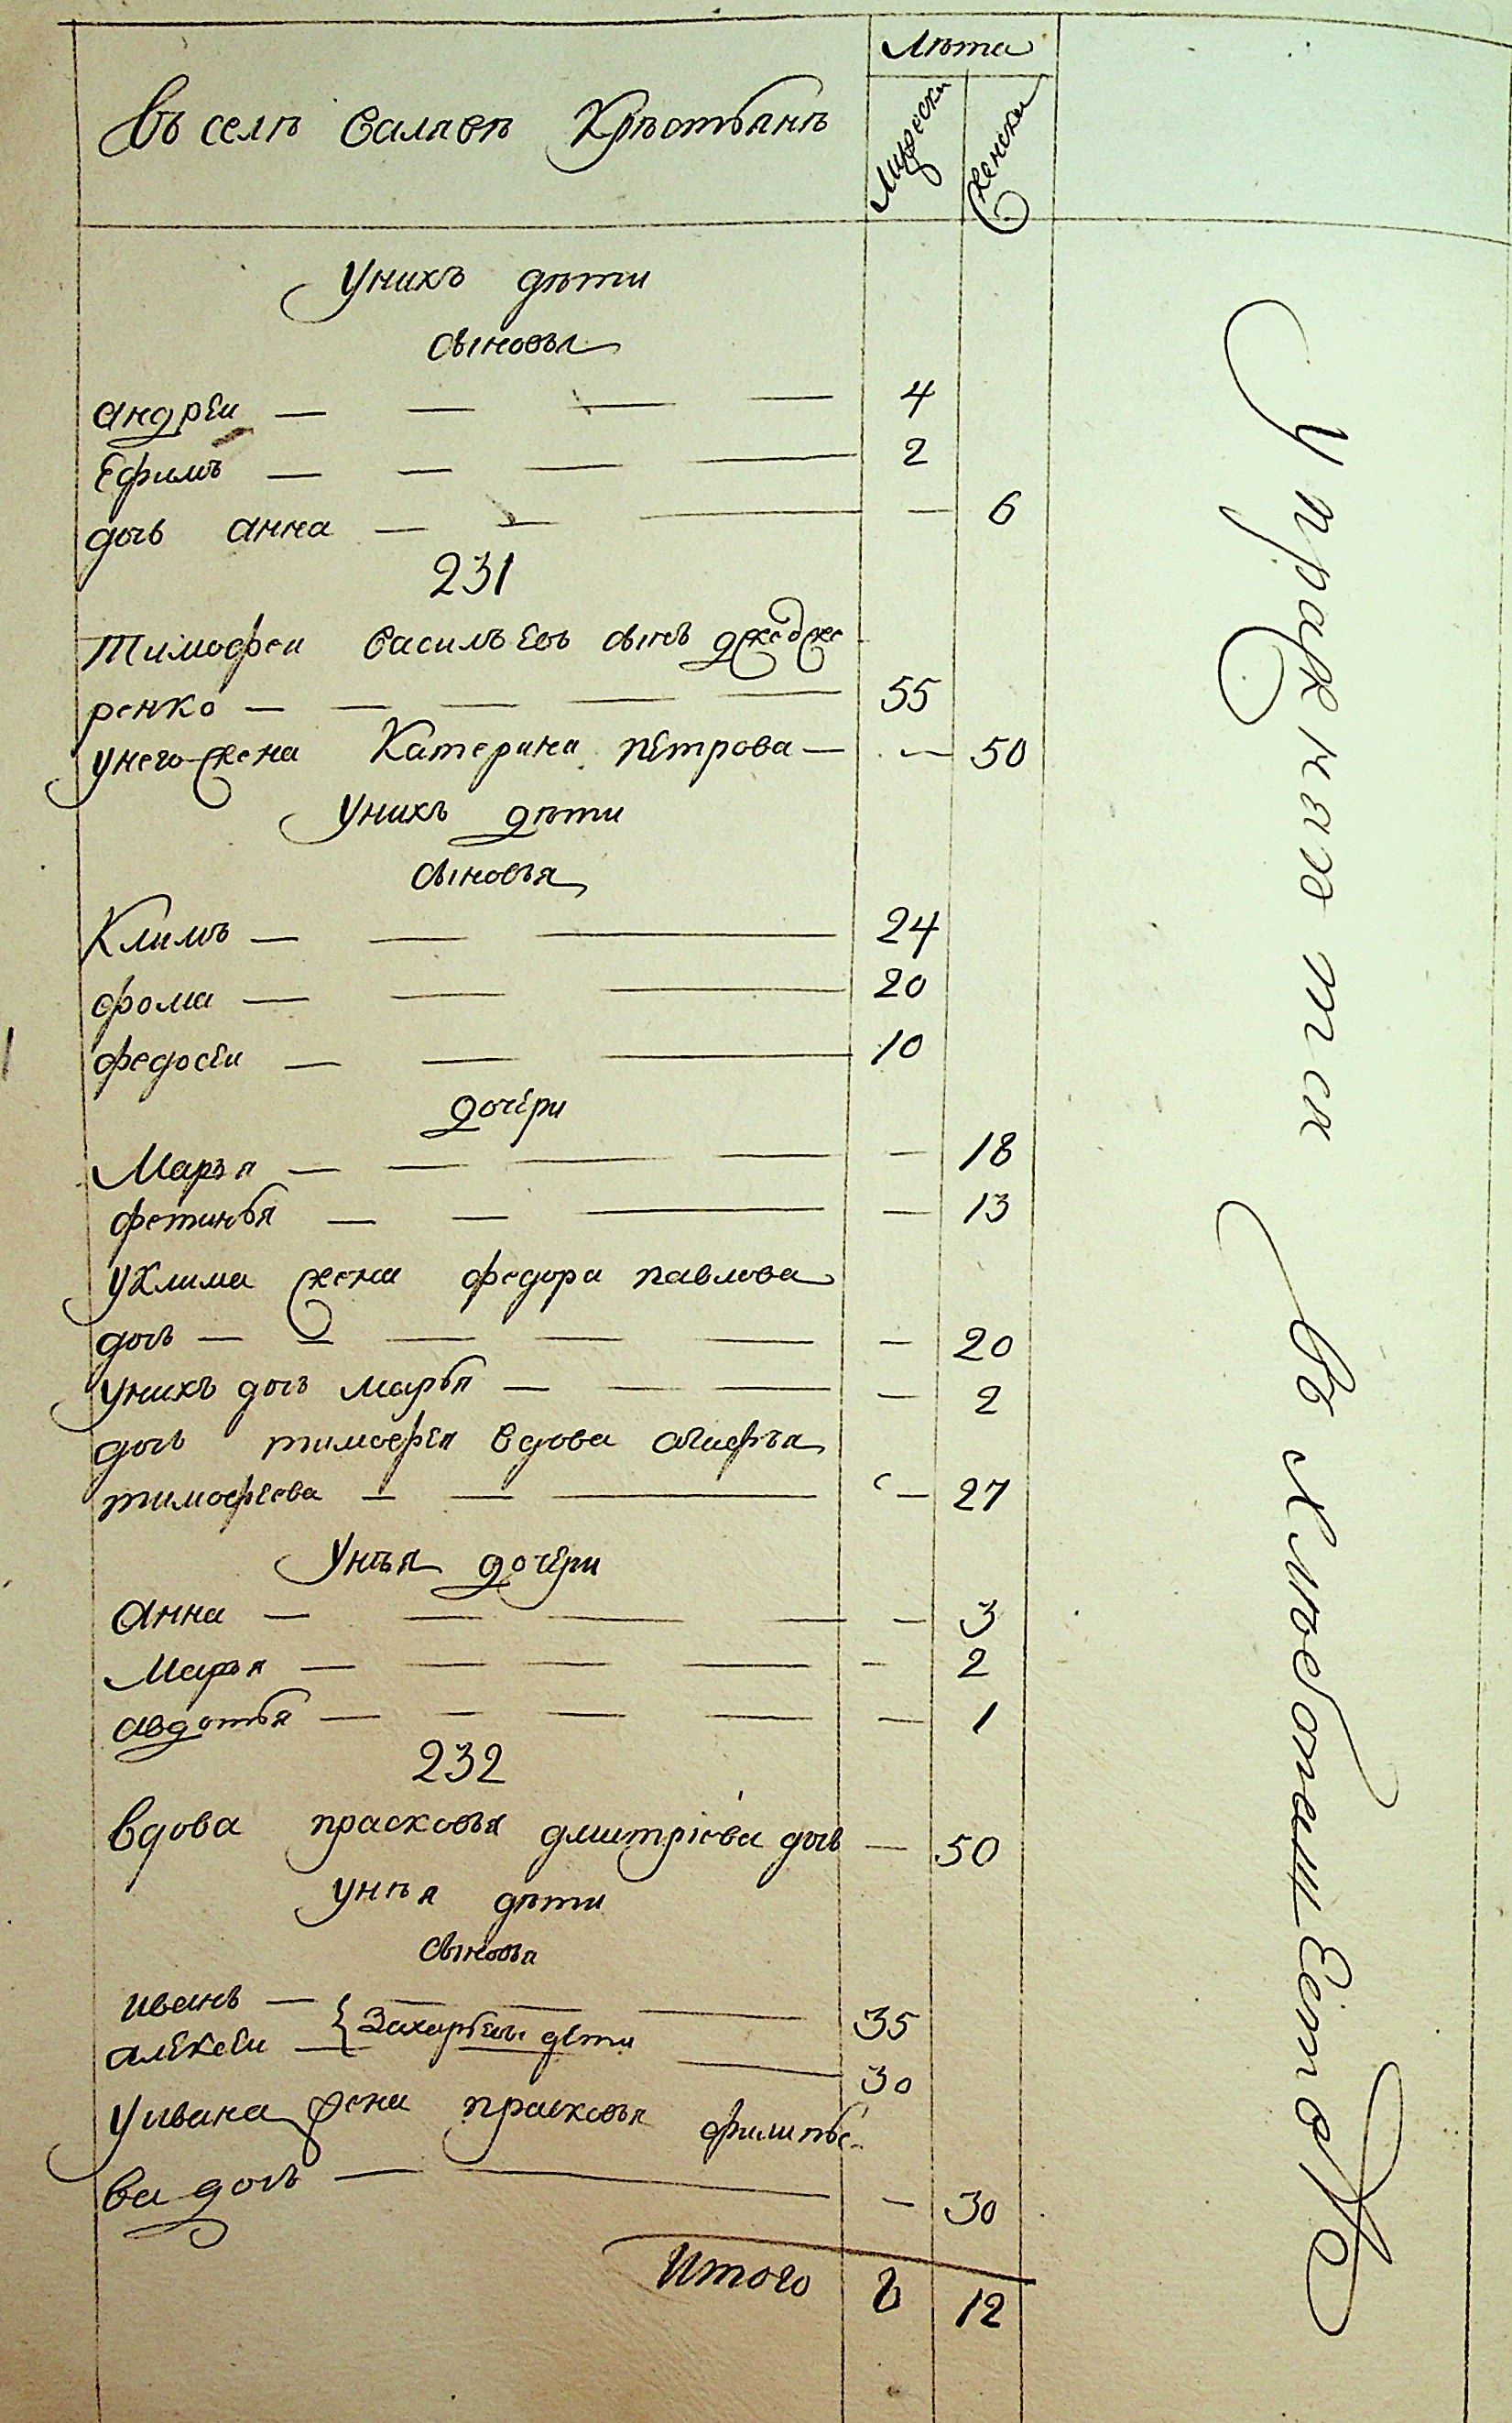 Лѣта
Въ селѣ Салаевѣ Крѣстьянѣ
Мужески Женски
Унихъ дѣти
сыновья
андреи — — — — 4
Ефимъ — — — — 2
дочь анна — — — — 6
231
Тимофеи васильевъ сынъ
ренко — — — — — 55
унего жена Катерина петрова — — 50
Унихъ дѣти
сыновья
Климъ — — — 24
фома — — — 20
федосеи — — — 10
дочери
Марья — — — — — 18
фетинья — — — — 13
уКлима жена федора павлова
дочь — — — — — — 20
Унихъ дочь марья — — — — 2
дочь тимофея вдова
тимофеева — — — — 27
Унѣя дочери
анна — — — — — 3
Марья — — — — — 2
авдотья — — — — — 1
232
Вдова прасковья дмитріева дочь — 50
унѣя дѣти
сыновья
иванъ — — — — 35
алексеи — { Захарьевы дѣти — 30
Уивана жена прасковья филипье
ва дочь — — — 30
Итого 8 12
Упражняетса въ хлѣбопашествѣ